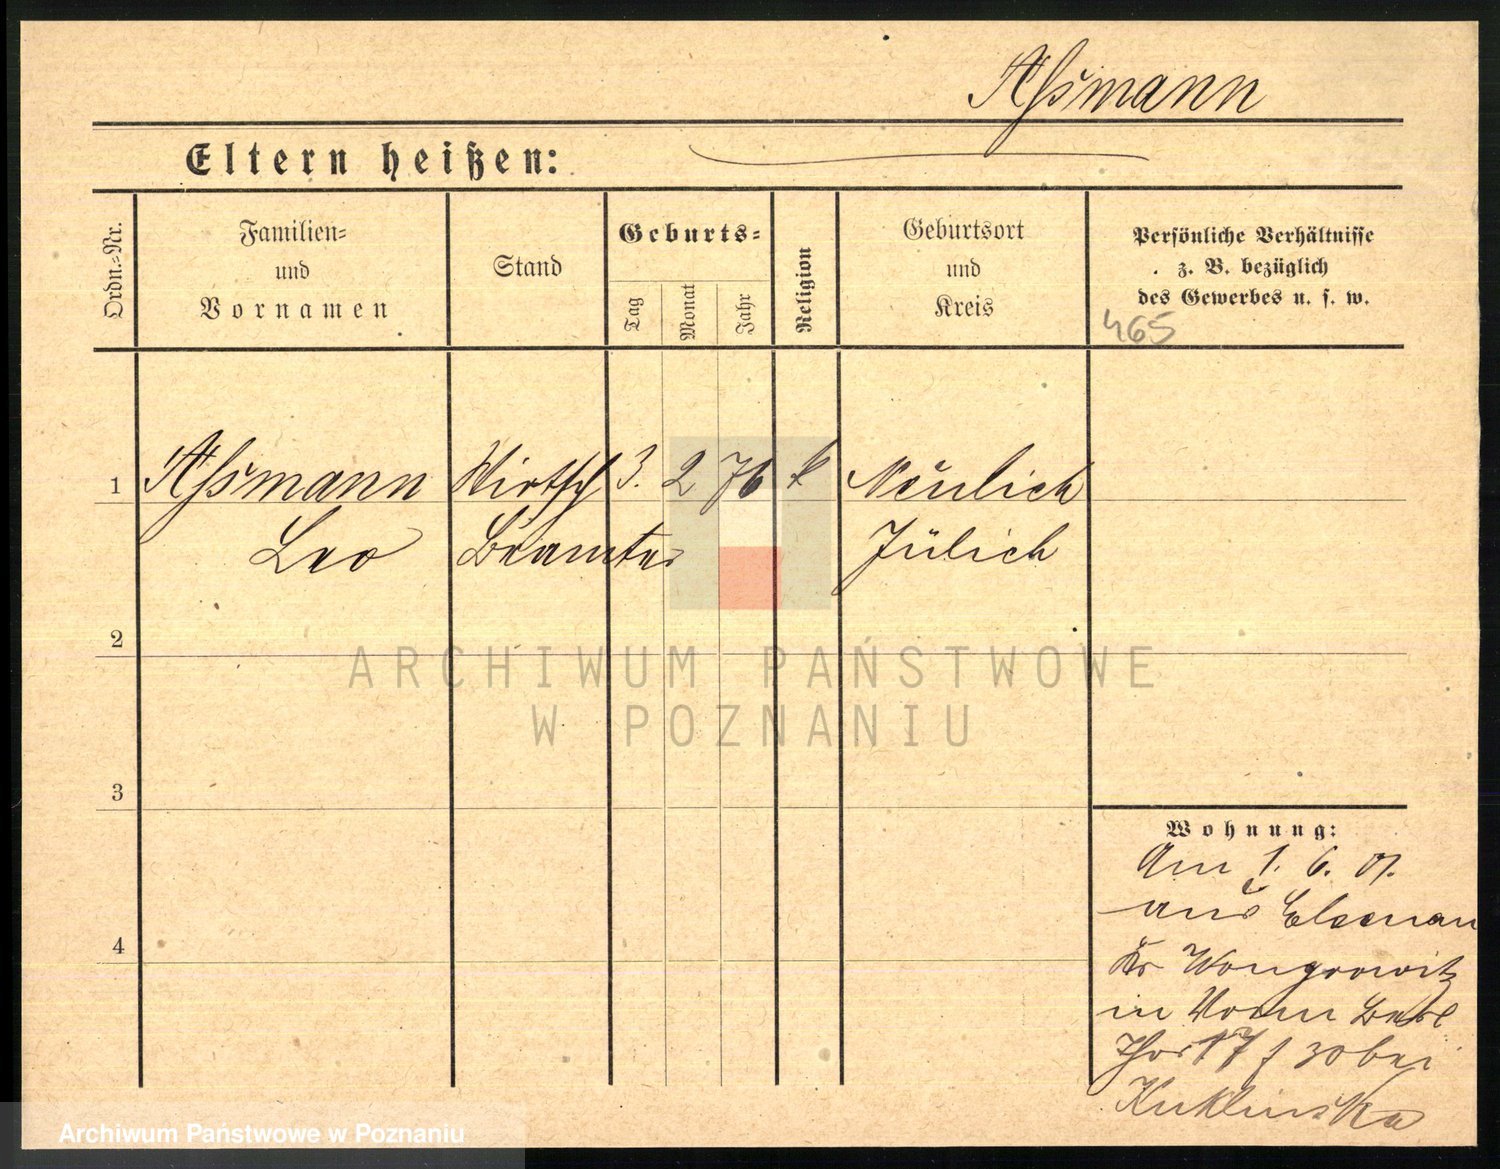 Assmann
Eltern heißen:
Ordn.-Nr.
Familien-
und
Vornamen
Stand
Geburts-
Tag
Monat
Jahr
Religion
Geburtsort
und
Kreis
Persönliche Verhältnisse
z. B. bezüglich
des Gewerbes u. s. w.
465
1 Assmann Wirtsch 3. 2 76 k Neulich
Leo Beamter Jülich
2
ARCHIWUM PAŃSTWOWE
W POZNANIU
3
4
Wohnung:
Am 1. 6. 01.
aus Elsenau
Kr Wongrowitz
in Vorm Berl
Thor 17 f 30 bei
Kuklinska
Archiwum Państwowe w Poznaniu